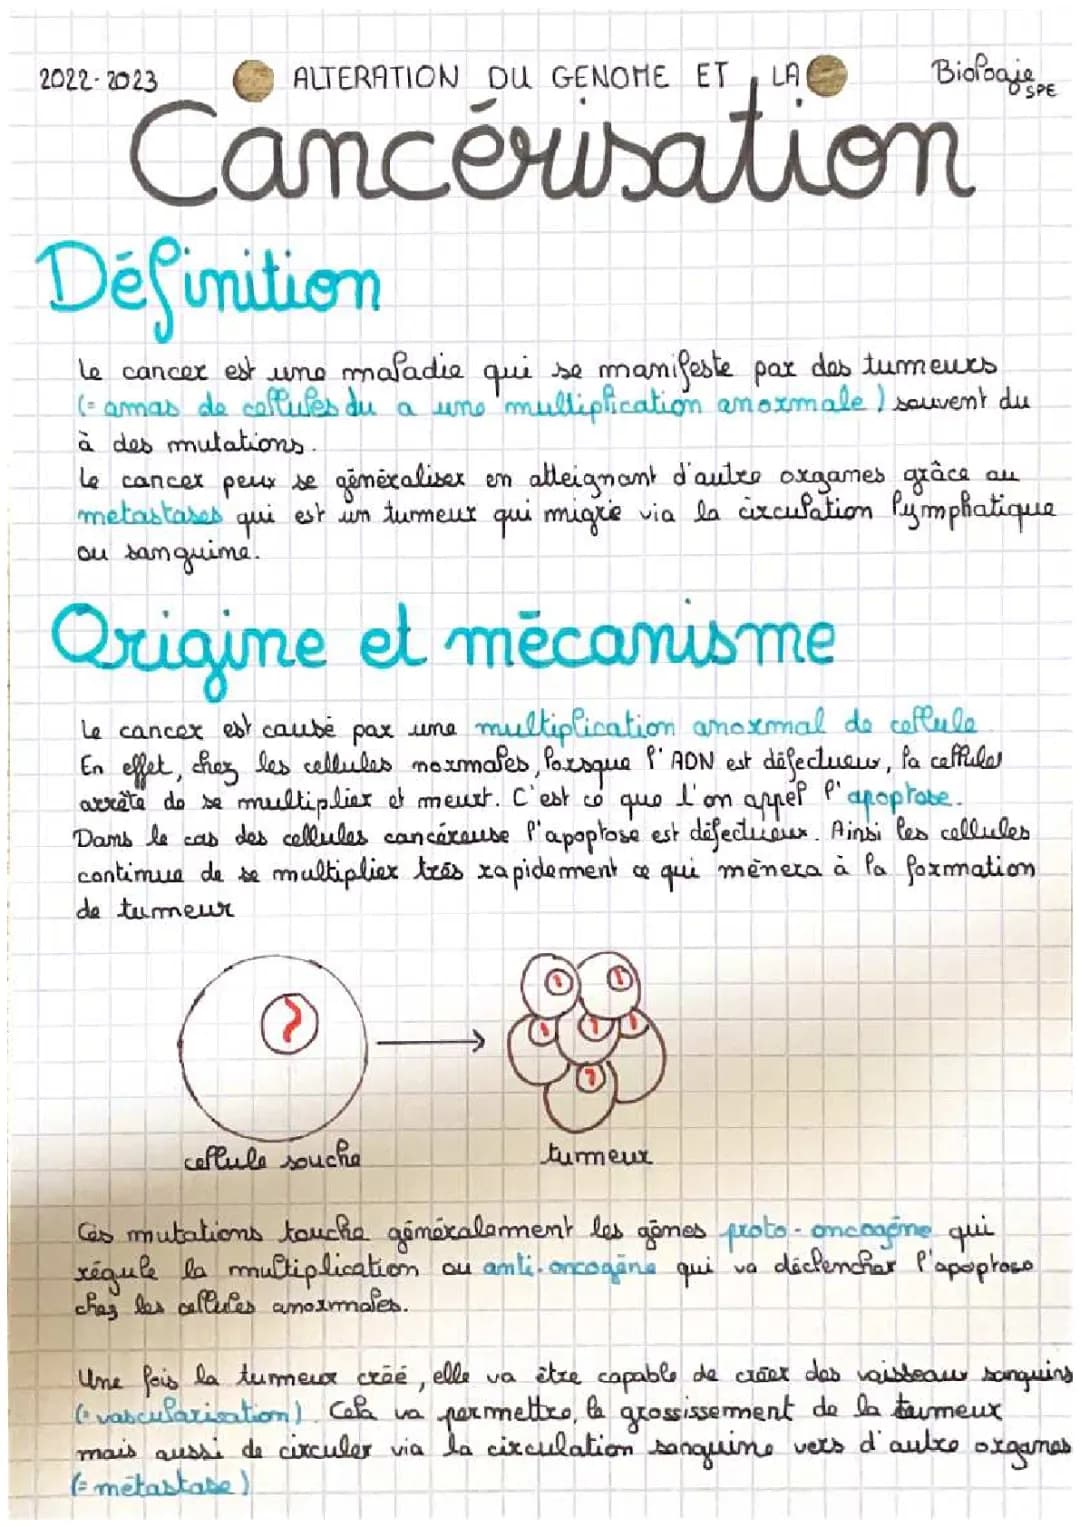 2022-2023
ALTERATION DU GENOME ET LA
Biologie SPE
Cancérisation
Définition
Le cancer est une maladie qui se manifeste par des tumeurs
(= amas de cellules du a une multiplication anormale) souvent du
à des mutations.
Le cancer peux se généraliser en atteignant d'autre organes grâce au
metastases qui est un tumeur qui migre via la circulation lymphatique
ou sanguine.
Origine et mécanisme
Le cancer est causé par une multiplication anormal de cellule
En effet, chez les cellules normales, lorsque l'ADN est défectueux, la cellules
arrête de se multiplier et meurt. C'est ce que l'on appel l'apoptose.
Dans le cas des cellules cancéreuse l'apoptose est défectueux. Ainsi les cellules
continue de se multiplier très rapidement ce qui mènera à la formation
de tumeur
cellule souche
tumeur
Ces mutations touche généralement les gènes proto-oncogène qui
régule la multiplication ou anti-oncogène qui va déclencher l'apoptose
chez les cellules anormales.
Une fois la tumeur créé, elle va être capable de créer des vaisseaux sanguins
(= vascularisation). Cela va permettre, le grossissement de la tumeur
mais aussi de circuler via la circulation sanguine vers d'autre organes
(= métastase)